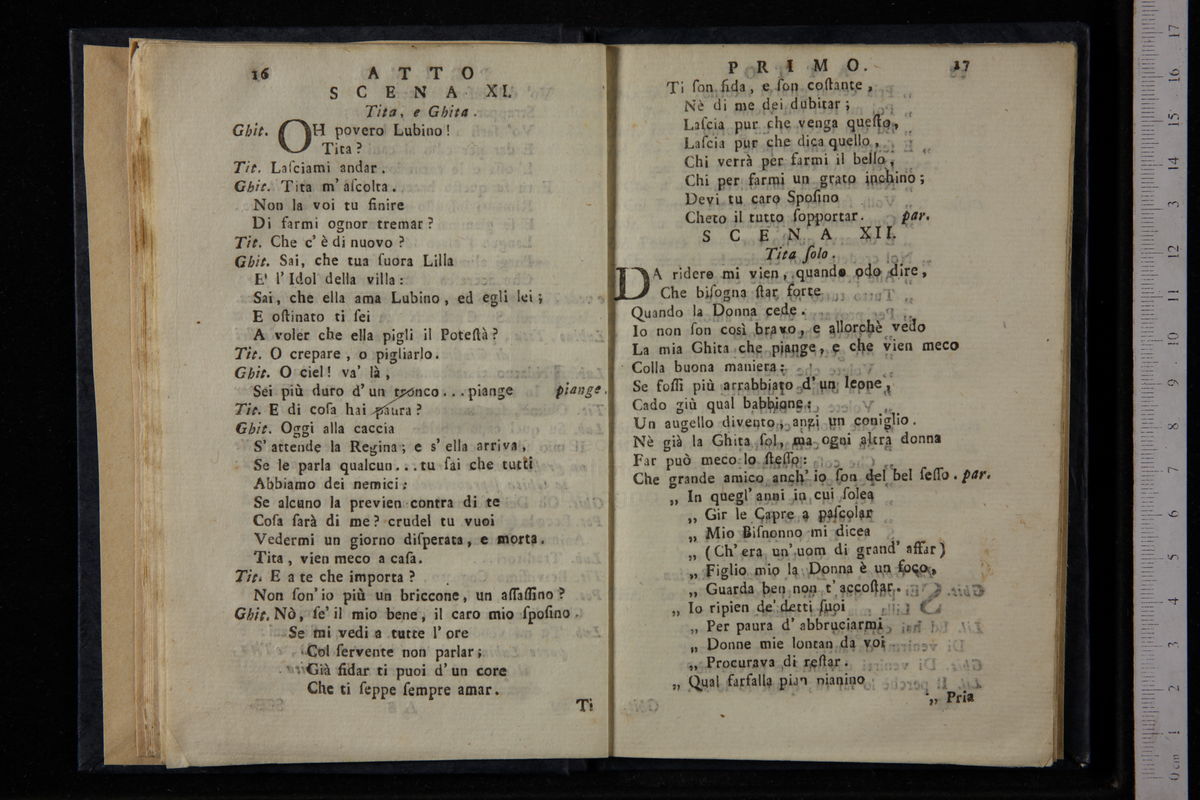 16 ATTO
SCENA XI.
Tita, e Ghita.
Ghit. OH povero Lubino!
Tita?
Tit. Laſciami andar.
Ghit. Tita m' aſcolta.
Non la voi tu finire
Di farmi ognor tremar?
Tit. Che c' è di nuovo?
Ghit. Sai, che tua ſuora Lilla
E' l' Idol della villa:
Sai, che ella ama Lubino, ed egli lei;
E oſtinato ti ſei
A voler che ella pigli il Poteſtà?
Tit. O crepare, o pigliarlo.
Ghit. O ciel! va' là,
Sei più duro d' un tronco... piange piange.
Tit. E di coſa hai paura?
Ghit. Oggi alla caccia
S' attende la Regina; e s' ella arriva,
Se le parla qualcun... tu ſai che tutti
Abbiamo dei nemici:
Se alcuno la previen contra di te
Coſa ſarà di me? crudel tu vuoi
Vedermi un giorno diſperata, e morta.
Tita, vien meco a caſa.
Tit. E a te che importa?
Non ſon' io più un briccone, un aſſaſſino?
Ghit. Nò, ſe' il mio bene, il caro mio ſpoſino.
Se mi vedi a tutte l' ore
Col ſervente non parlar;
Già fidar ti puoi d' un core
Che ti ſeppe ſempre amar.
Ti
PRIMO. 17
Ti ſon fida, e ſon coſtante,
Nè di me dei dubitar;
Laſcia pur che venga queſto,
Laſcia pur che dica quello,
Chi verrà per farmi il bello,
Chi per farmi un grato inchino;
Devi tu caro Spoſino
Cheto il tutto ſopportar. par.
SCENA XII.
Tita ſolo.
DA ridere mi vien, quando odo dire,
Che biſogna ſtar forte
Quando la Donna cede.
Io non ſon così bravo, e allorchè vedo
La mia Ghita che piange, e che vien meco
Colla buona maniera:
Se foſſi più arrabbiato d' un leone,
Cado giù qual babbione:
Un augello divento, anzi un coniglio.
Nè già la Ghita ſol, ma ogni altra donna
Far può meco lo ſteſſo:
Che grande amico anch' io ſon del bel ſeſſo. par.
„ In quegl' anni in cui ſolea
„ Gir le Capre a paſcolar
„ Mio Biſnonno mi dicea
„ (Ch' era un' uom di grand' affar)
„ Figlio mio la Donna è un foco,
„ Guarda ben non t' accoſtar.
„ Io ripien de' detti ſuoi
„ Per paura d' abbruciarmi
„ Donne mie lontan da voi
„ Procurava di reſtar.
„ Qual farfalla pian pianino
„ Pria